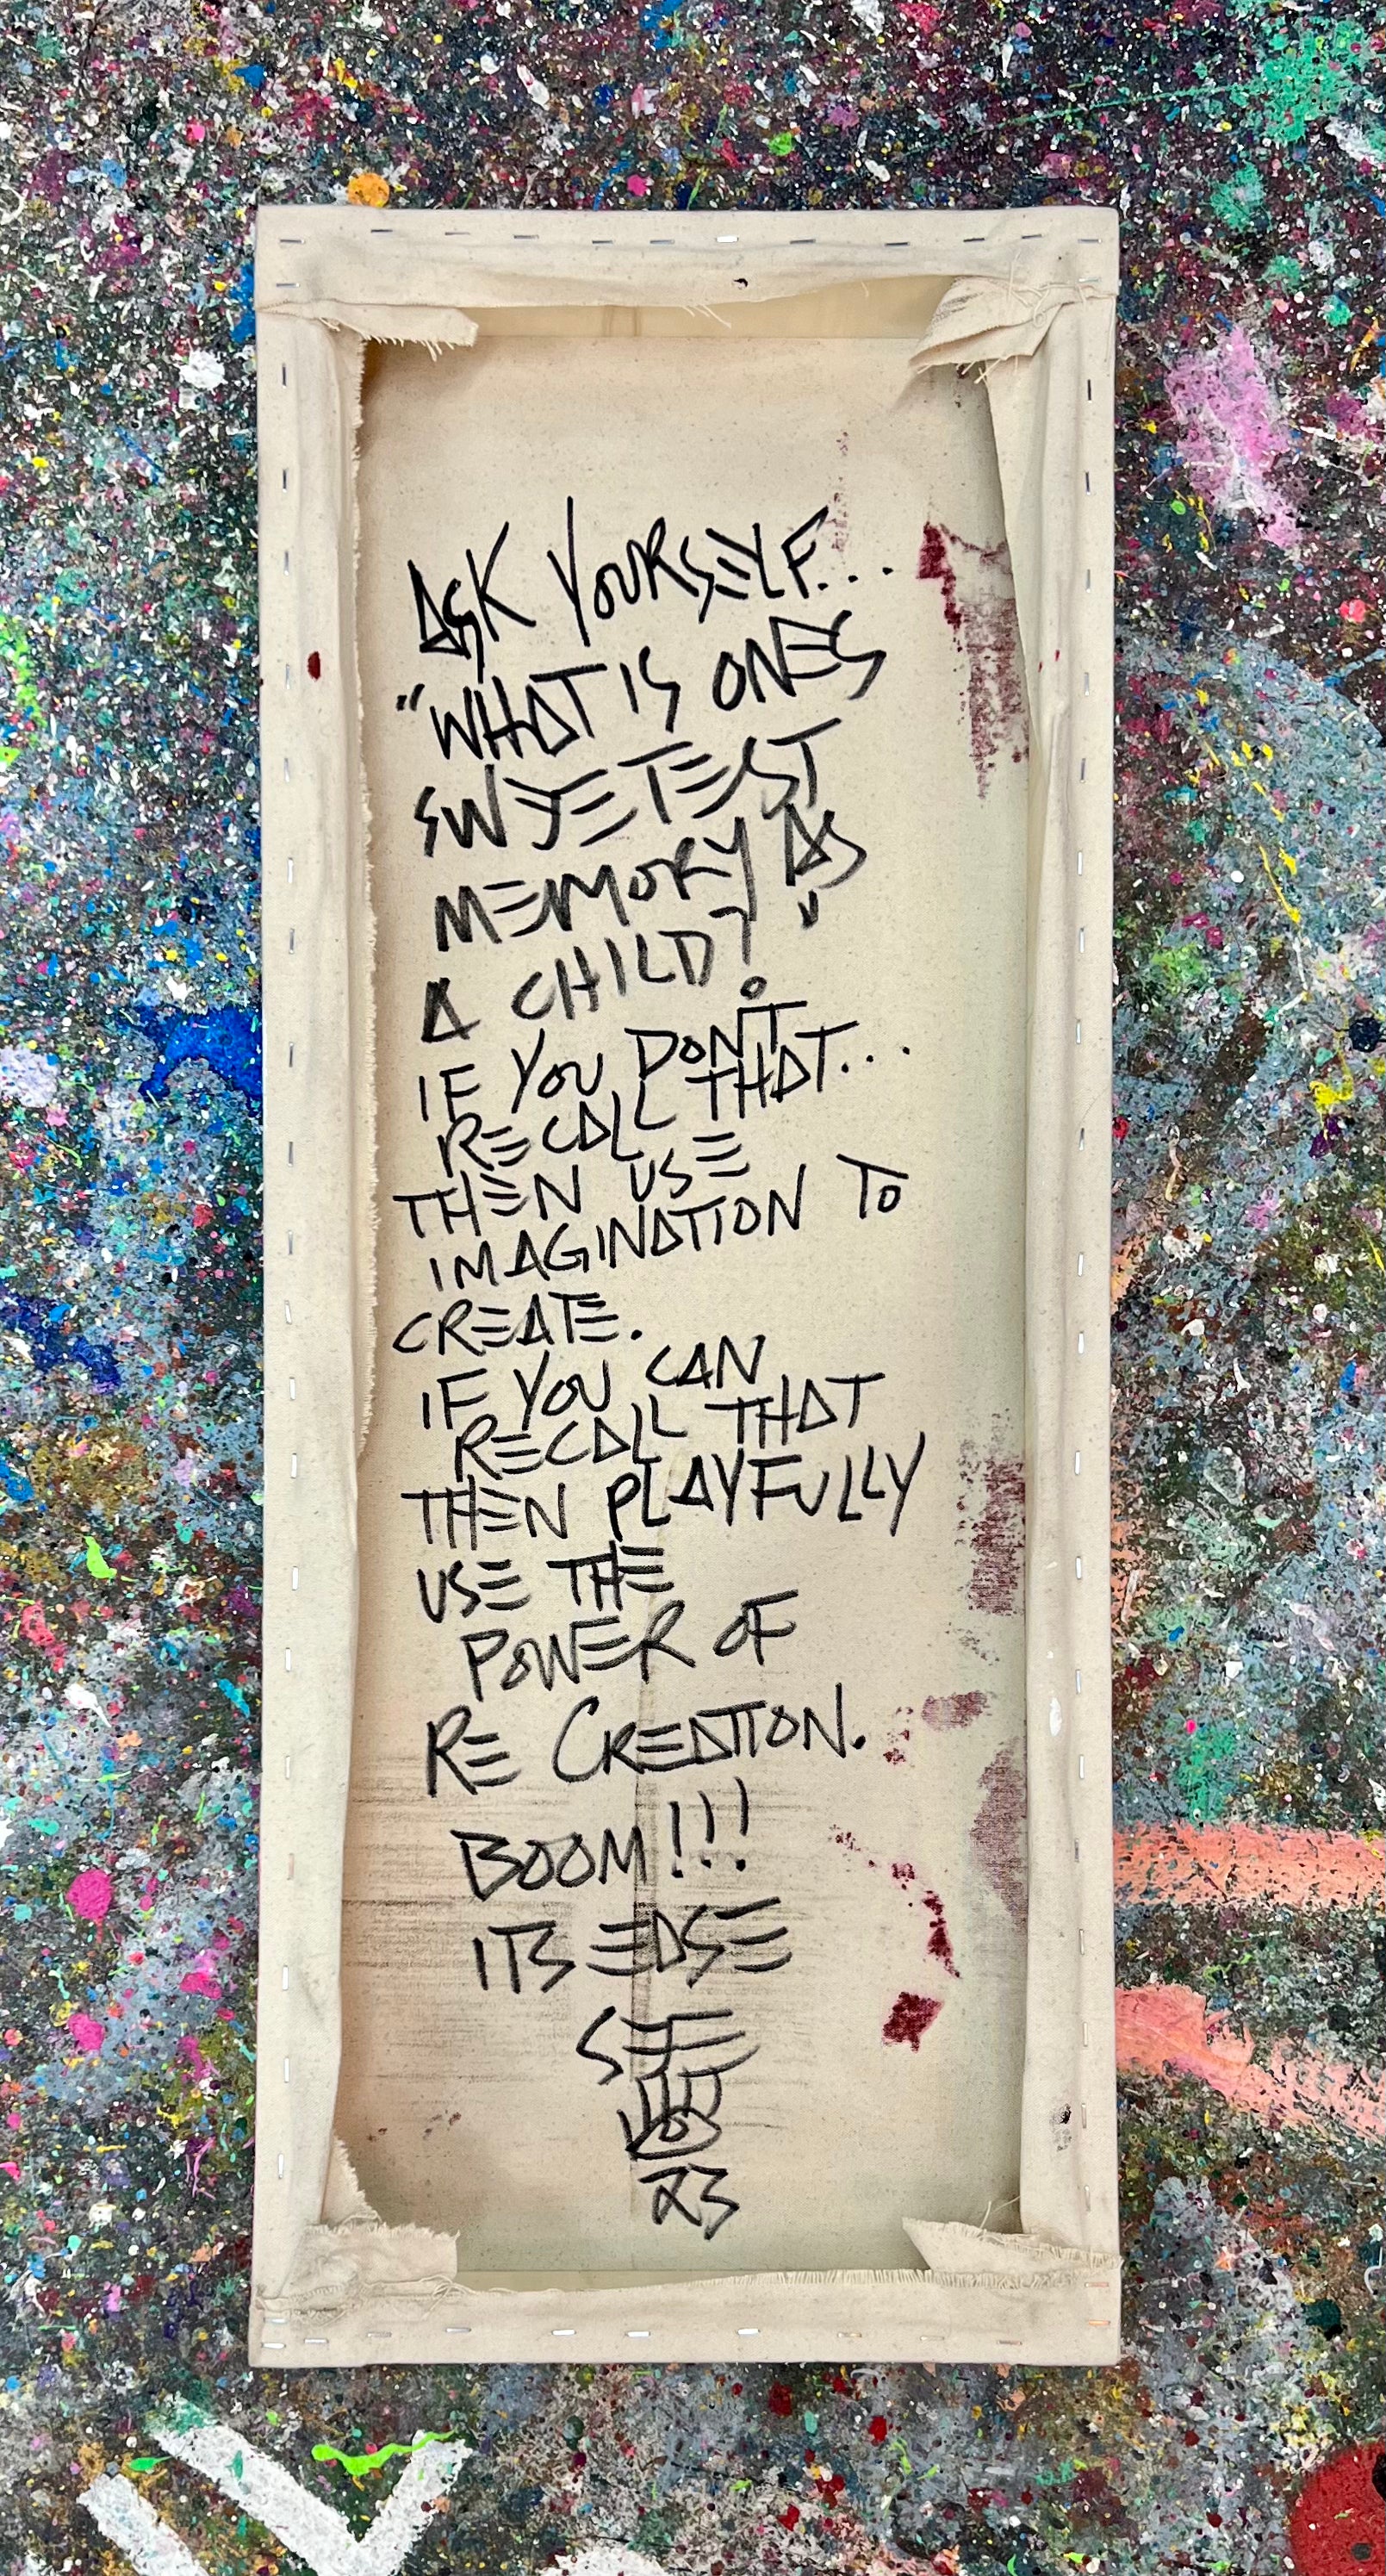 ASK YOURSELF...
"WHAT IS ONES
SWEETEST
MEMORY AS
A CHILD?"
IF YOU DON'T
RECALL THAT...
THEN USE
IMAGINATION TO
CREATE.
IF YOU CAN
RECALL THAT
THEN PLAYFULLY
USE THE
POWER OF
RE CREATION.
BOOM!!!
ITS EASE
23